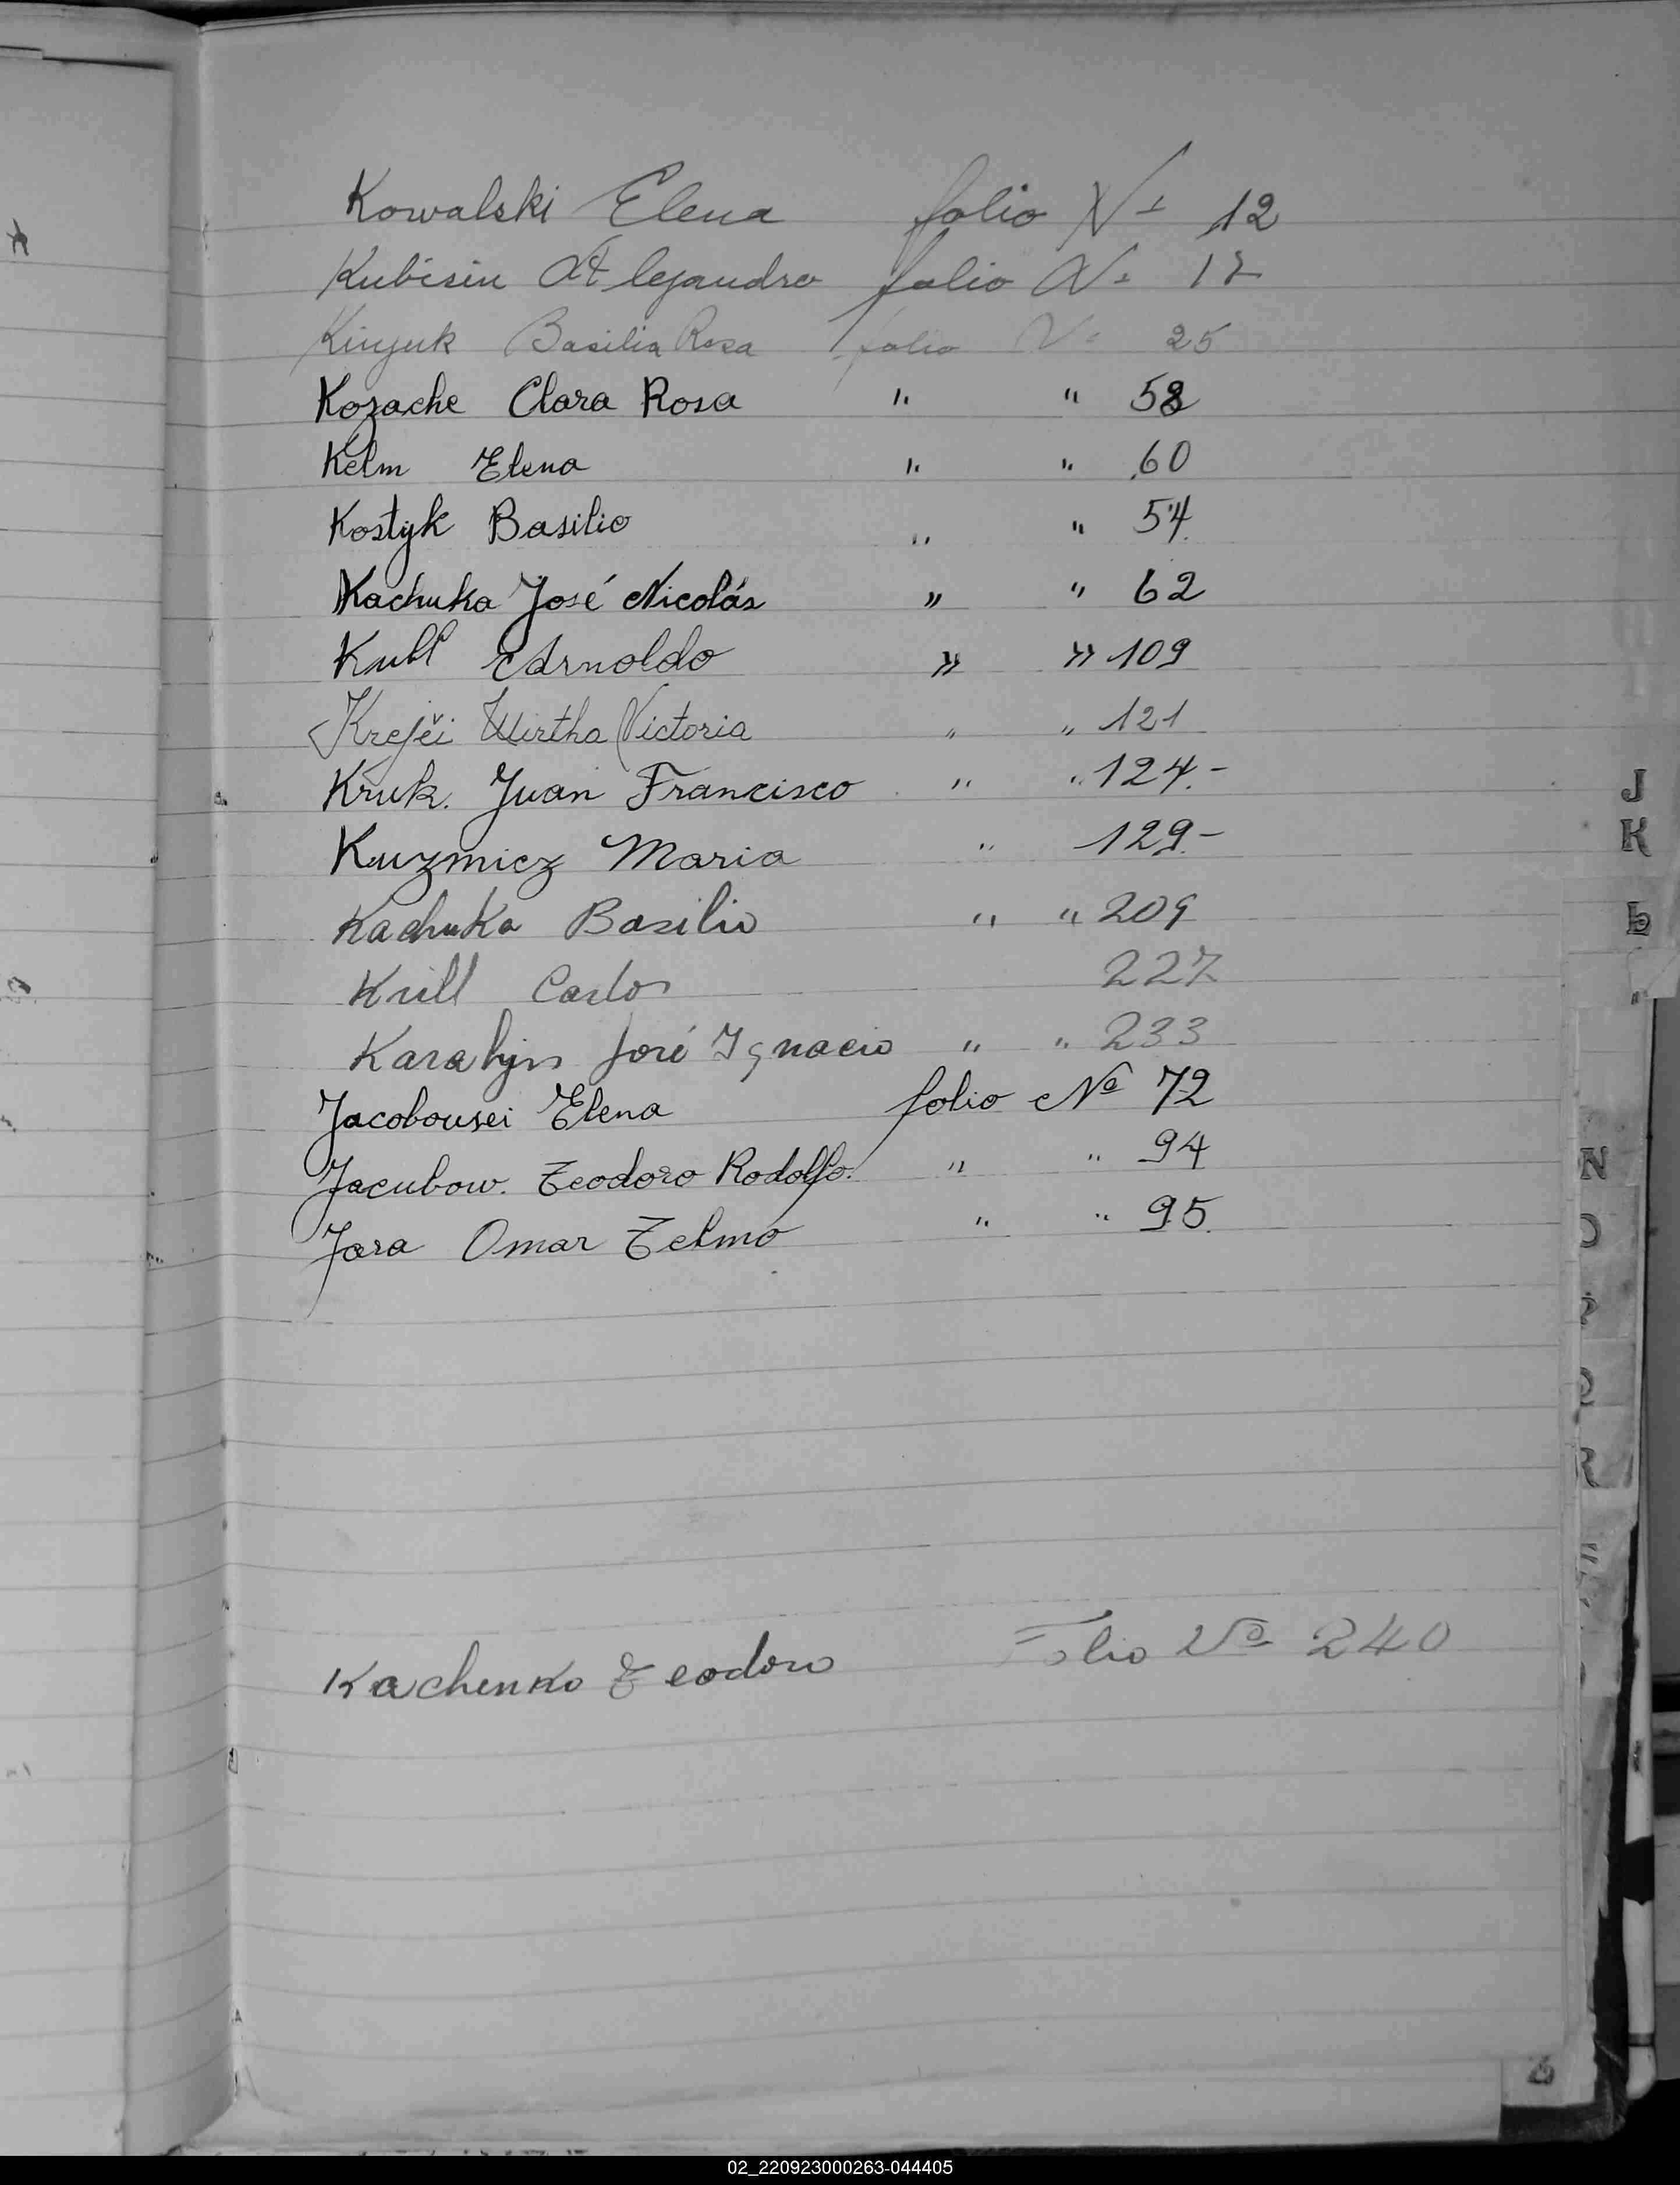 Kowalski Elena folio Nº 12
Kubisin Alejandro folio Nº 17
Kinyuk Basilia Rosa folio Nº 25
Kozache Clara Rosa " " 58
Kelm Elena " " 60
Kostyk Basilio " " 54.
Kachuka José Nicolás " " 62
Kull Arnoldo " " 109
Krejči Mirtha Victoria " " 121
Kruk. Juan Francisco " " 124.-
Kuzmicz Maria " 129.-
Kachuka Basilio " " 209
Krill Carlos 227
José Ignacio " " 233
Jacobousei Elena folio Nº 72
Jacubow. Teodoro Rodolfo. " " 94
Jara Omar Telmo " " 95.
Kachenko Teodoro Folio Nº 240
J
K
L
N
O
P
Q
R
02_220923000263-044405